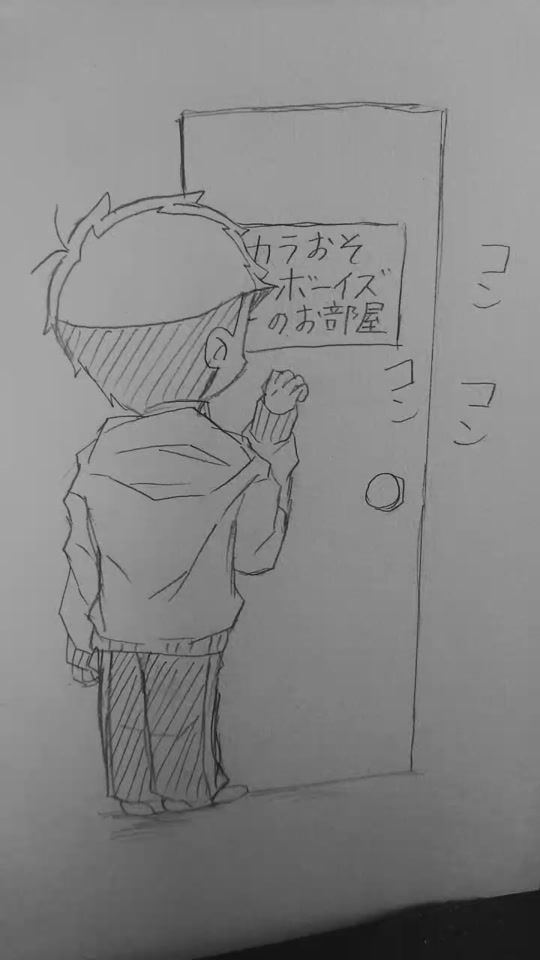 カラおそ
ボーイズ
のお部屋
コン
コン
コン